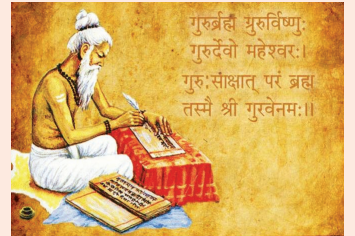 गुरुर्ब्रह्म ग्रुरुर्विष्णुः
गुरुर्देवो महेश्वरः।
गुरुःसंाक्षात् परं ब्रह्म
तस्मै श्री गुरवेनमः॥